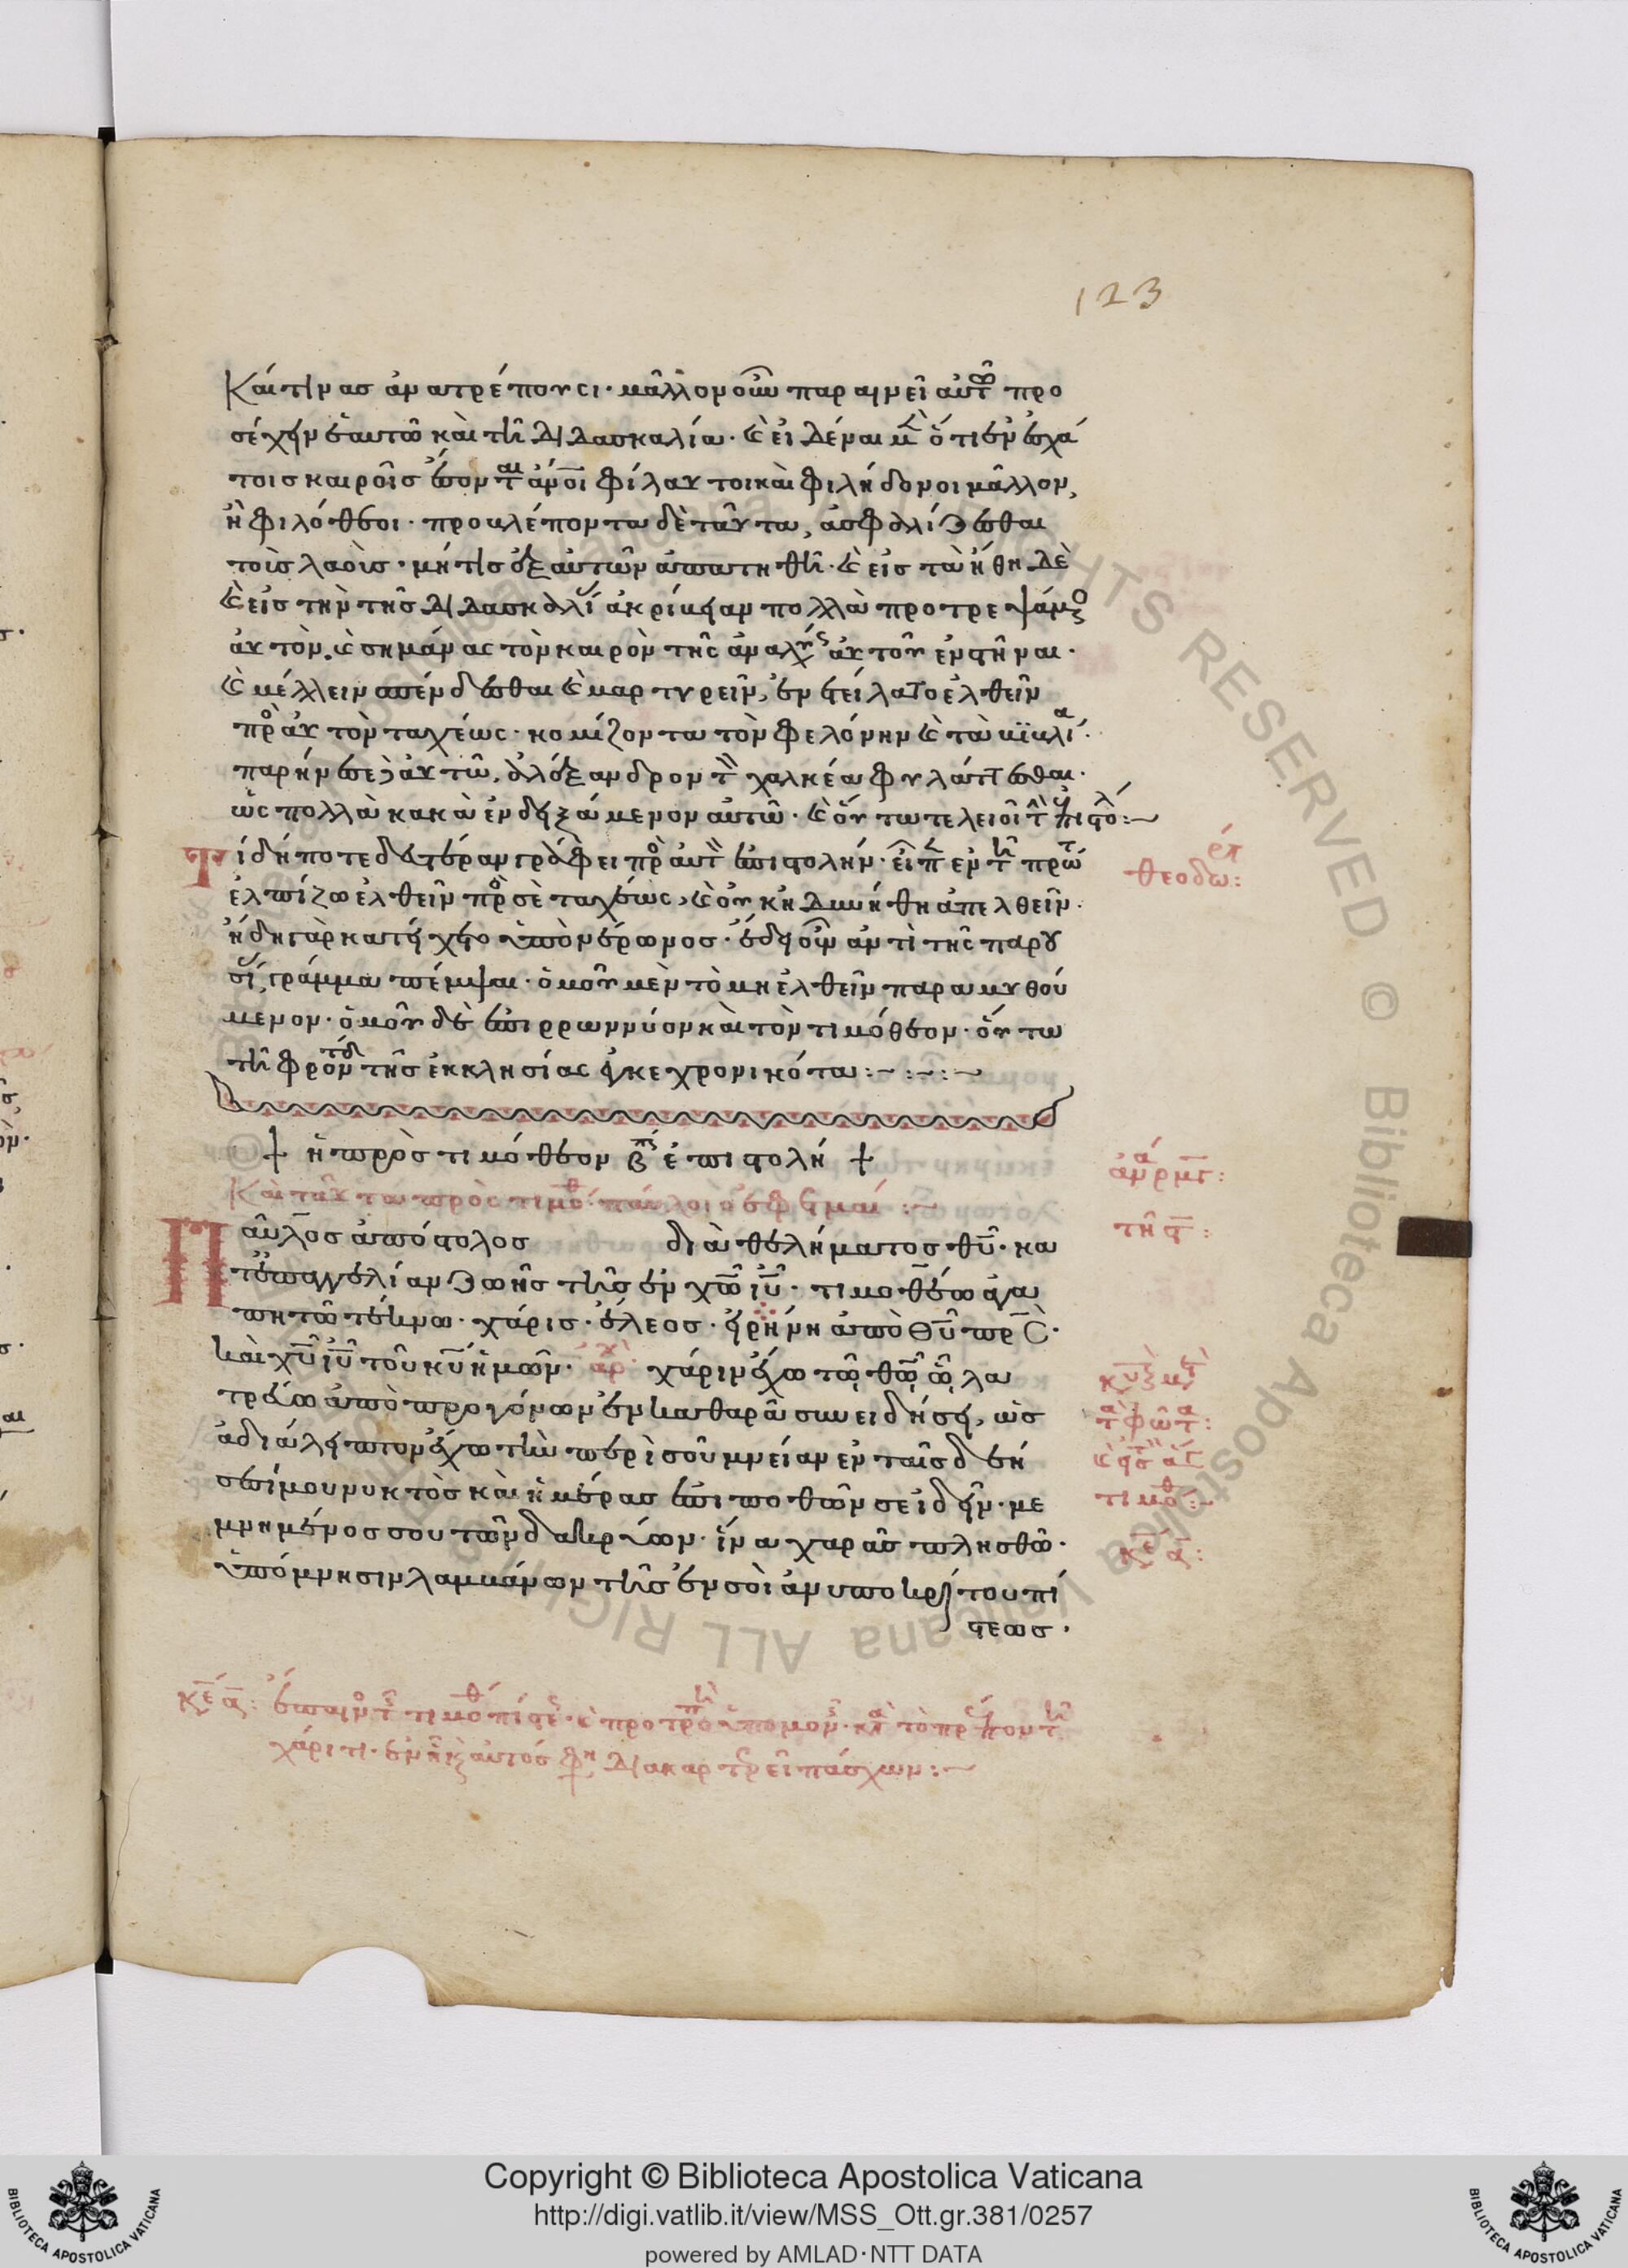 123
Καί τινας ἀνατρέπουσι· μᾶλλον οὖν παραινεῖ αὐτῶ προ
σέχειν ἑαυτῶ καὶ τῆ διδασκαλία· καὶ εἰδέναι ὅτι ἐν ἐσχά
τοις καιροῖς ἔσονται ἄνοι φίλαυτοι καὶ φιλήδονοι μᾶλλον,
ἢ φιλόθεοι· προβλέποντα δὲ ταῦτα, ἀσφαλίζεσθαι
τοῖς λαοῖς· μή τις ἐξ αὐτῶν ἀπατηθῆ· καὶ εἰς τὰ ἤθη δὲ
καὶ εἰς τὴν τῆς διδασκαλίας ἀκρίβειαν πολλὰ προτρεψάμενος
αὐτὸν, καὶ σημάνας τὸν καιρὸν τῆς ἀναλύσεως αὐτοῦ ἐνστῆναι·
καὶ μέλλειν σπένδεσθαι καὶ μαρτυρεῖν, ἐνστείλατο ἐλθεῖν
πρὸς αὐτὸν ταχέως· κομίζοντα τὸν φελόνην καὶ τὰ βιβλία·
παρήνεσε δὲ αὐτῶ, ἀλέξανδρον τὸν χαλκέα φυλάττεσθαι·
ὡς πολλὰ κακὰ ἐνδειξάμενον αὐτῶ· καὶ οὕτω τελειοῖ τὴν ἐπιστολήν:~
Τί δήποτε δευτέραν γράφει πρὸς αὐτὸν ἐπιστολήν· εἶπεν ἐν τῆ πρώτη
ἐλπίζω ἐλθεῖν πρὸς σὲ ταχέως, καὶ οὐκ ἠδυνήθη ἀπελθεῖν·
ἤδη γὰρ κατείχετο ὑπὸ νέρωνος· ἔδει οὖν ἀντὶ τῆς παρου
σίας, γράμμα πέμψαι· ὁμοῦ μὲν τὸ μὴ ἐλθεῖν παραμυθού
μενον· ὁμοῦ δὲ ἐπιρρωννύον καὶ τὸν τιμόθεον· οὕτω
τῆ φροντίδι τῆς ἐκκλησίας ἐγκεχρονικότα:~·:~·:~
+ ἡ πρὸς τιμόθεον β ἐπιστολή +
Παῦλος ἀπόστολος διὰ θελήματος θυ· κα
τ' ἐπαγγελίαν ζωῆς τῆς ἐν χω ιυ· τιμοθέω ἀγα
πητῶ τέκνω· χάρις· ἔλεος· εἰρήνη ἀπὸ θυ πρς·
καὶ χυ ιυ τοῦ κυ ἡμῶν· ἀρχ χάριν ἔχω τῶ θω ὧ λα
τρεύω ἀπὸ προγόνων ἐν καθαρᾶ συνειδήσει, ὡς
ἀδιάλειπτον ἔχω τὴν περὶ σοῦ μνείαν ἐν ταῖς δεή
σεσί μου νυκτὸς καὶ ἡμέρας ἐπιποθῶν σε ἰδεῖν· με
μνημένος σου τῶν δακρύων· ἵνα χαρᾶς πλησθῶ·
ὑπόμνησιν λαμβάνων τῆς ἐν σοὶ ἀνυποκρίτου πί
στεως·
θεοδω:
τιμοθ:~
κε α:
κε α:
χάριτι· ἐν ἧ καὶ αὐτός φη διακαρτερεῖ πάσχων:~
Copyright © Biblioteca Apostolica Vaticana
http://digi.vatlib.it/view/MSS_Ott.gr.381/0257
powered by AMLAD·NTT DATA
BIBLIOTECA APOSTOLICA VATICANA
BIBLIOTECA APOSTOLICA VATICANA